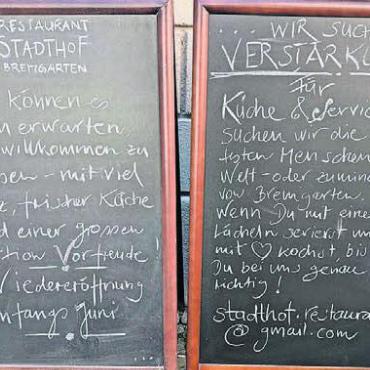 RESTAURANT
STADTHOF
BREMGARTEN
können es
erwarten
willkommen zu
ben - mit viel
frischer Küche
d einer grossen
Vorfreude!
Wiedereröffnung
nfangs Juni
... WIR SUCH
VERSTÄRKU
für
Küche & Servic
suchen wir die
Menschen
Welt - oder zumin
von Bremgarten.
Wenn Du mit eine
Lächeln servierst un
mit ♡ kochst, bis
Du bei uns genau
richtig!
stadthof.restaura
@gmail.com